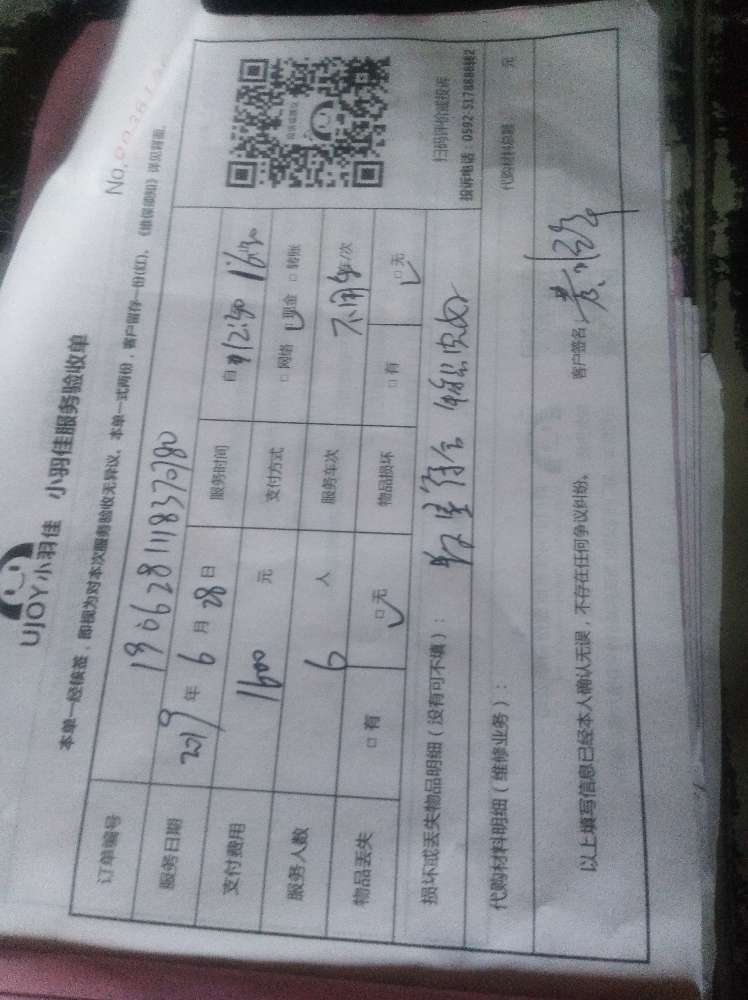 UJOY小羽佳 小羽佳服务验收单
No.
本单一经续签，即视为对本次服务验收无异议。本单一式两份，客户留存一份(红)，《维保须知》详见背面。
订单编号 190628111837080
服务日期 2019年6月28日 服务时间 自
支付费用 1600元 支付方式 □网络 □现金 □转账
服务人数 6人 服务车次 不用 车/次
物品丢失 □有 □无 物品损坏 □有 □无
扫码评价或投诉
投诉电话：0592-5178888转2
损坏或丢失物品明细（没有可不填）：
代购材料明细（维修业务）： 代购材料总额 元
以上填写信息已经本人确认无误，不存在任何争议纠纷。 客户签名：